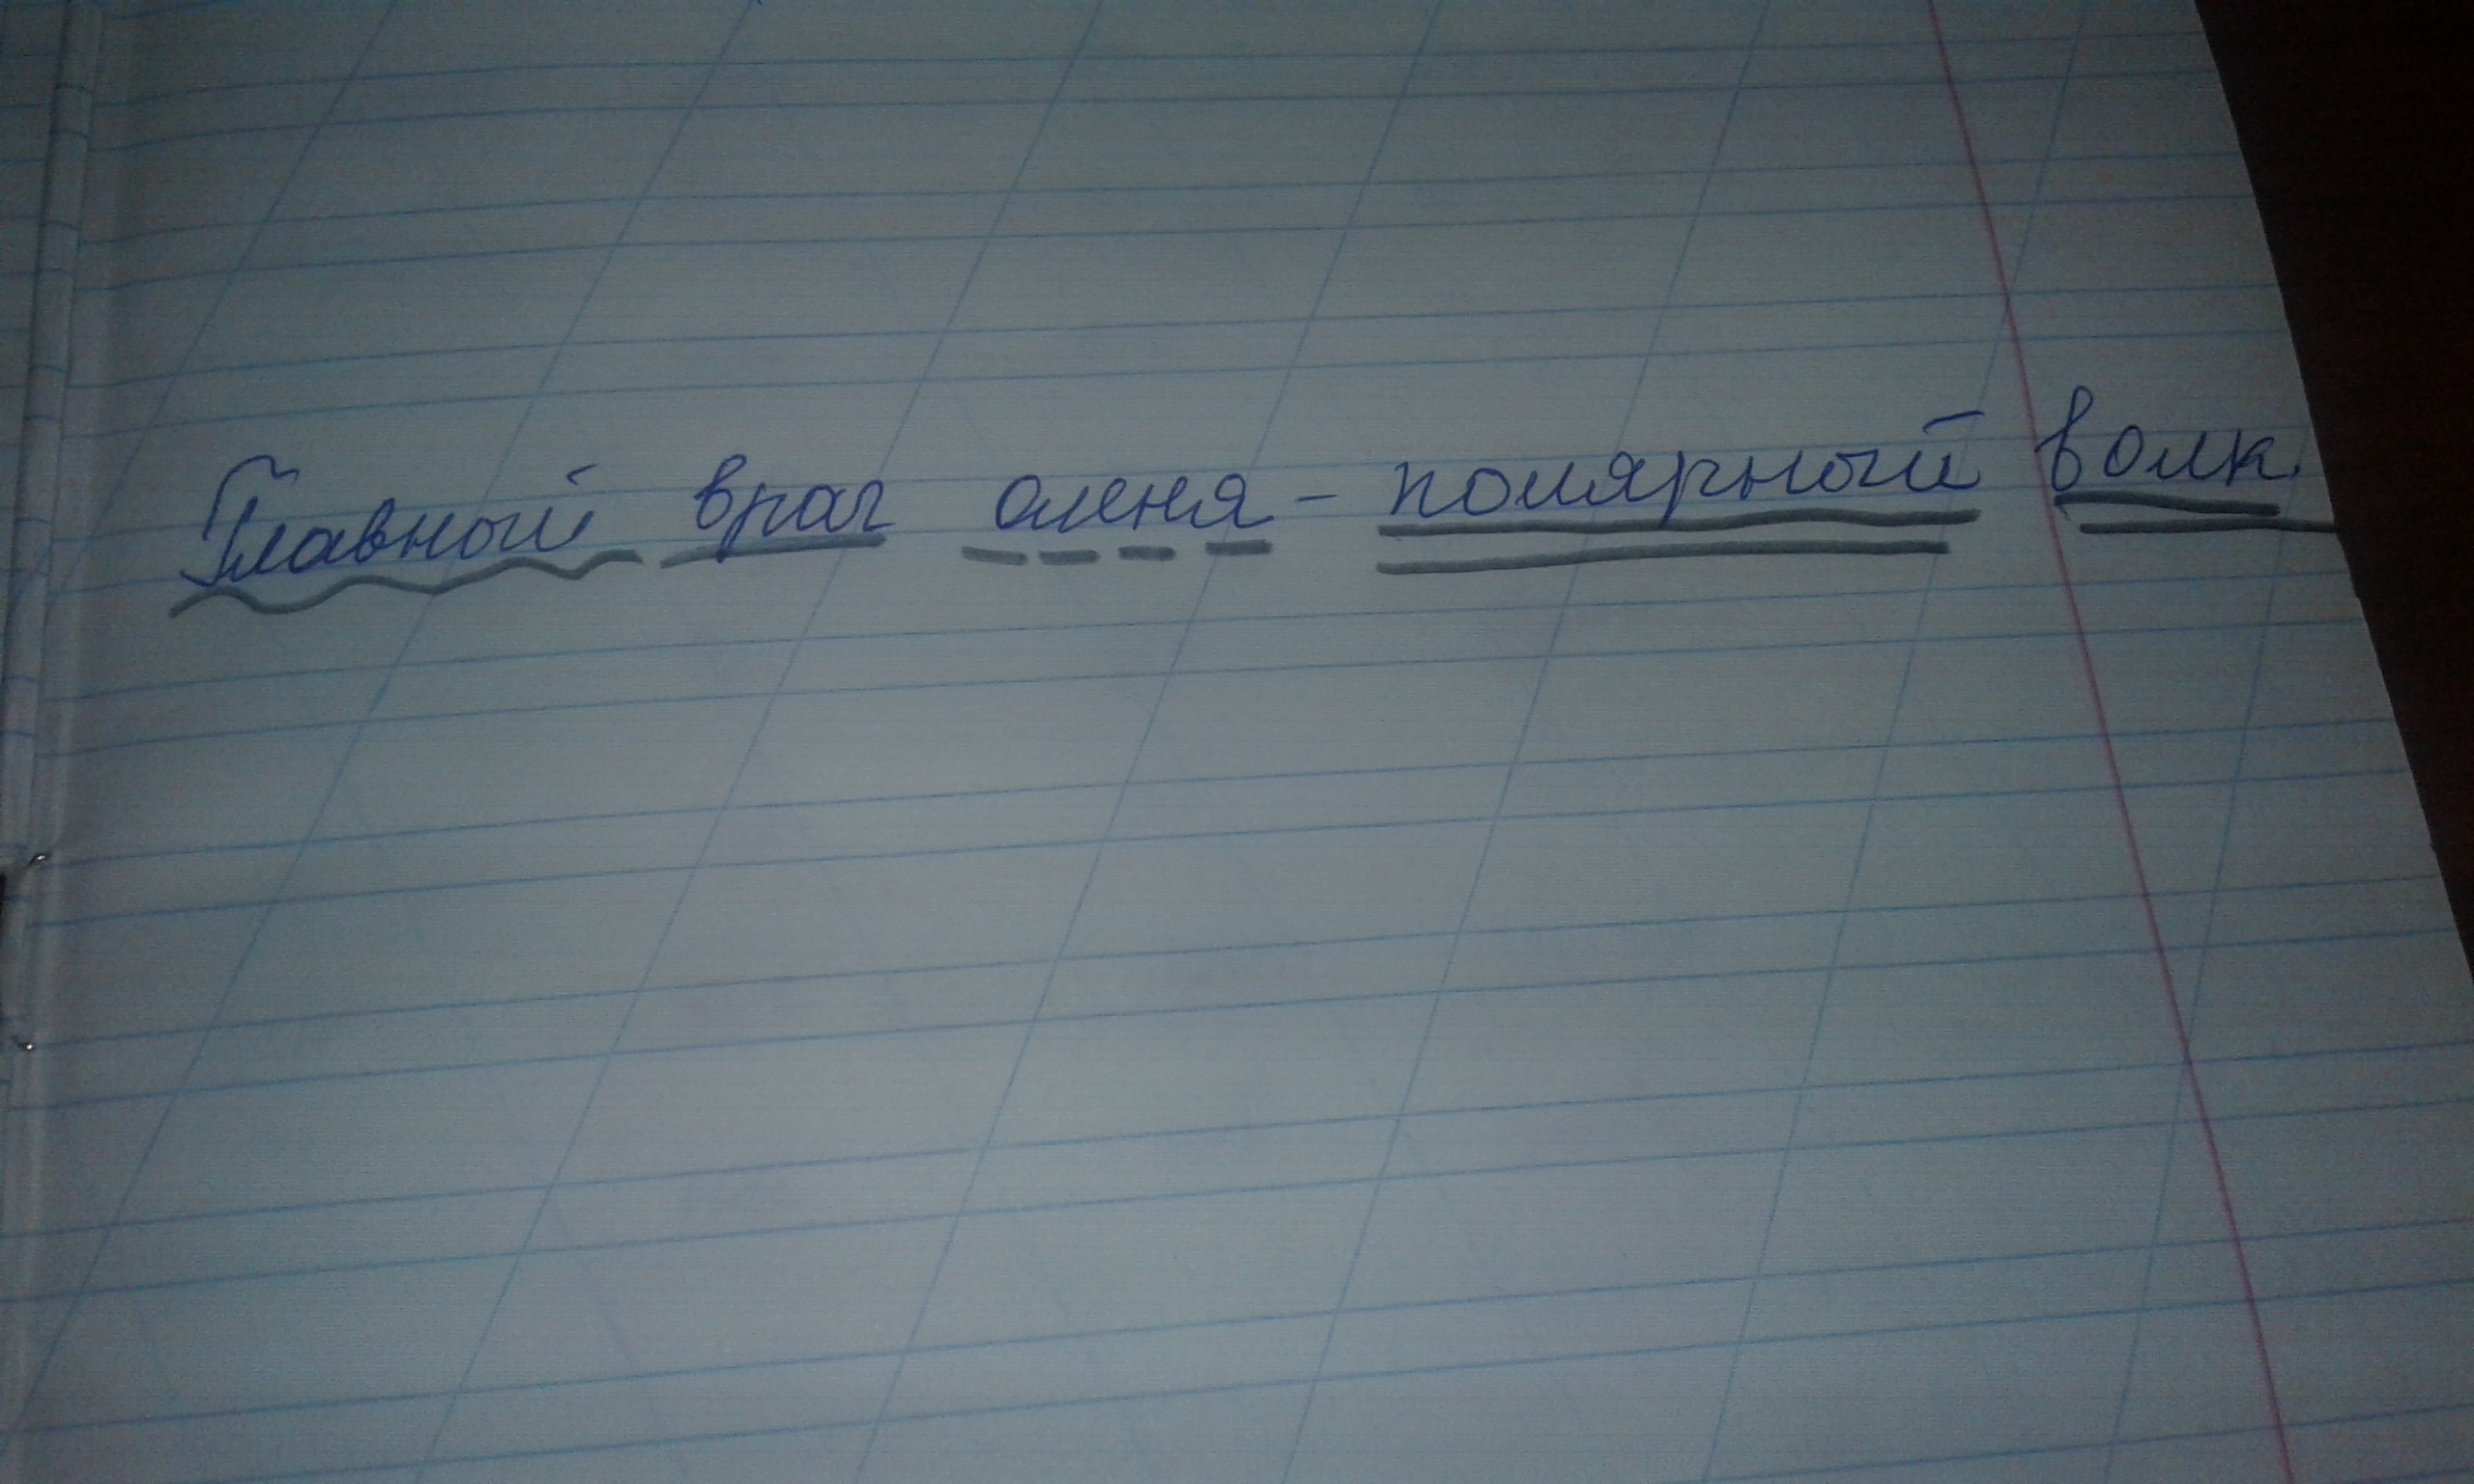 Главный враг оленя - полярный волк.